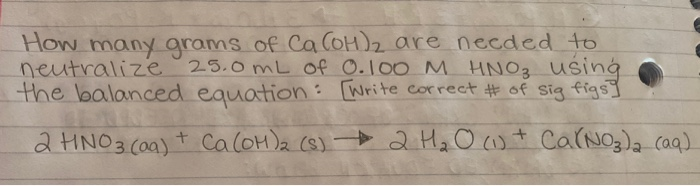 How many grams of Ca(OH)₂ are needed to
neutralize 25.0 mL of 0.100 M HNO₃ using
the balanced equation: [Write correct # of sig figs]
2 HNO₃ (aq) + Ca(OH)₂ (s) → 2 H₂O (l) + Ca(NO₃)₂ (aq)